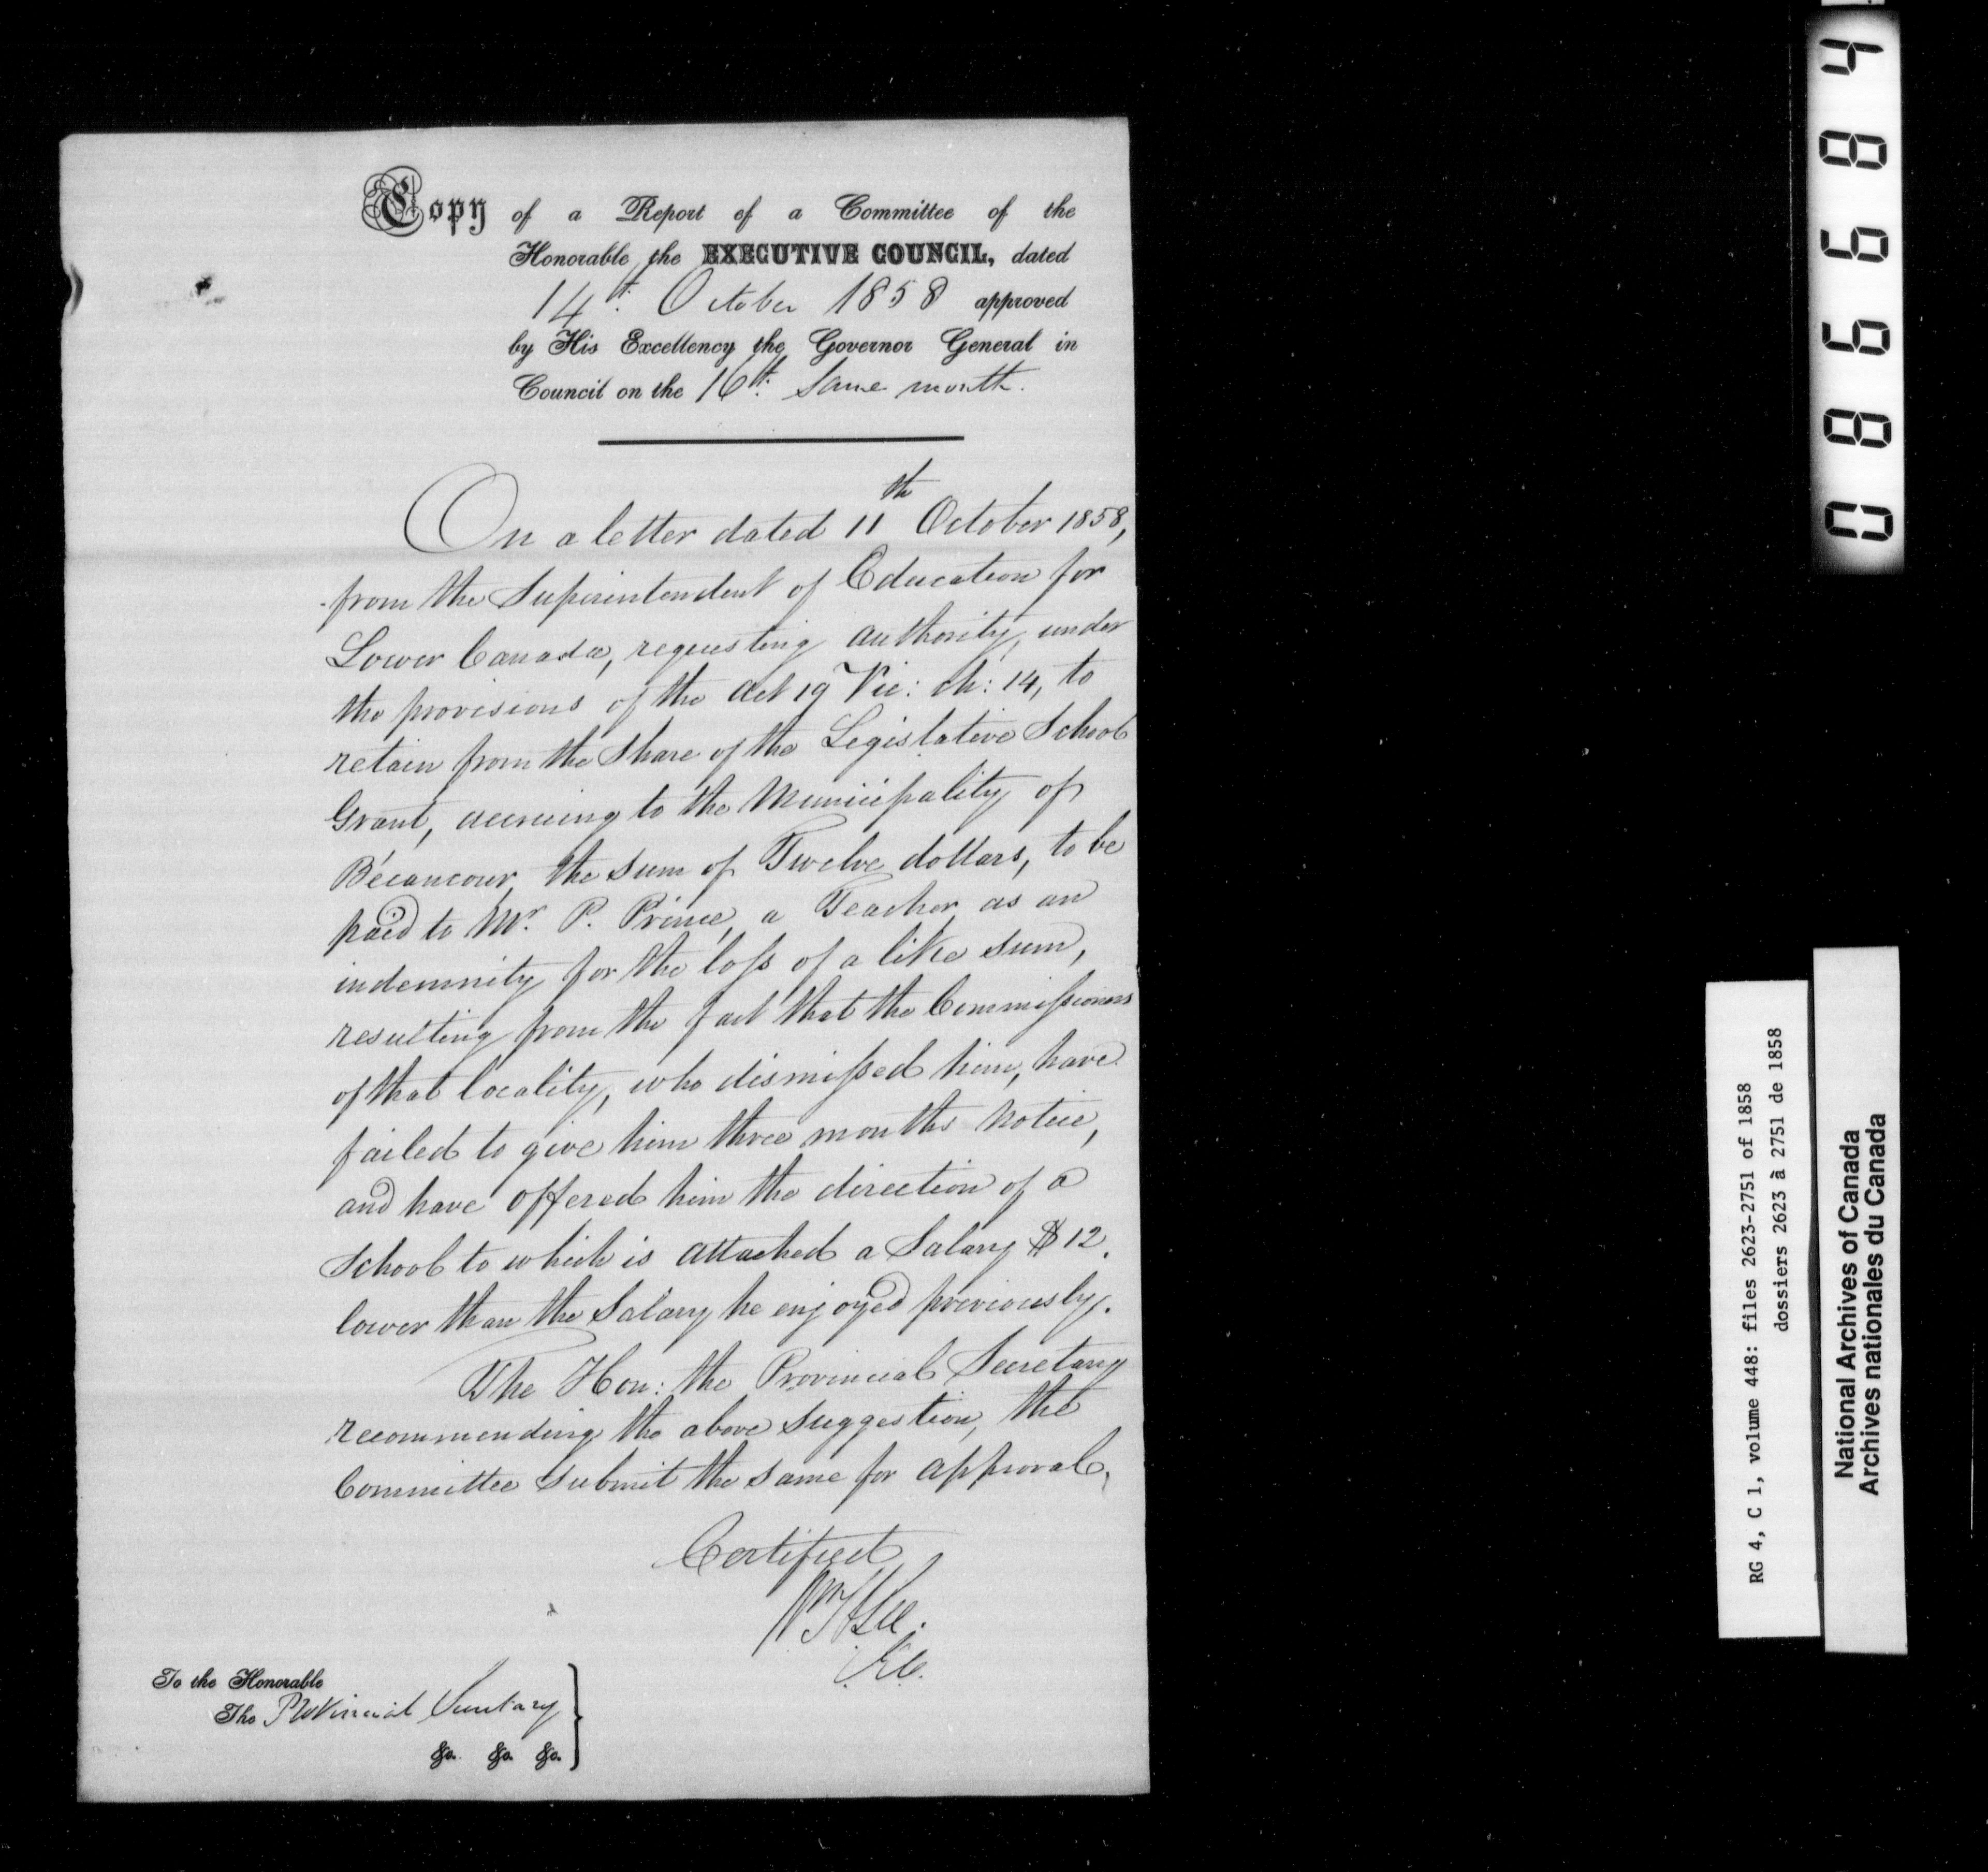 Copy of a Report of a Committee of the
Honorable the EXECUTIVE COUNCIL, dated
14th October 1858 approved
by His Excellency the Governor General in
Council on the 16th Same month.
On a letter dated 11th October 1858,
from the Superintendent of Education for
Lower Canada, requesting authority, under
the provisions of the Act 19 Vic: ch: 14, to
retain from the Share of the Legislative School
Grant, accruing to the Municipality of
Bécancour, the sum of Twelve dollars, to be
paid to Mr. P. Prince, a Teacher, as an
indemnity for the loss of a like sum,
resulting from the fact that the Commissioners
of that locality, who dismissed him, have
failed to give him three months notice,
and have offered him the direction of a
School to which is attached a Salary $12.
lower than the Salary he enjoyed previously.
The Hon: the Provincial Secretary
recommending the above suggestion, the
Committee submit the same for approval.
Certified
Wm H Lee.
C.E.C.
To the Honorable
The Provincial Secretary
&c. &c. &c.
086684
RG 4, C 1, volume 448: files 2623-2751 of 1858
dossiers 2623 à 2751 de 1858
National Archives of Canada
Archives nationales du Canada